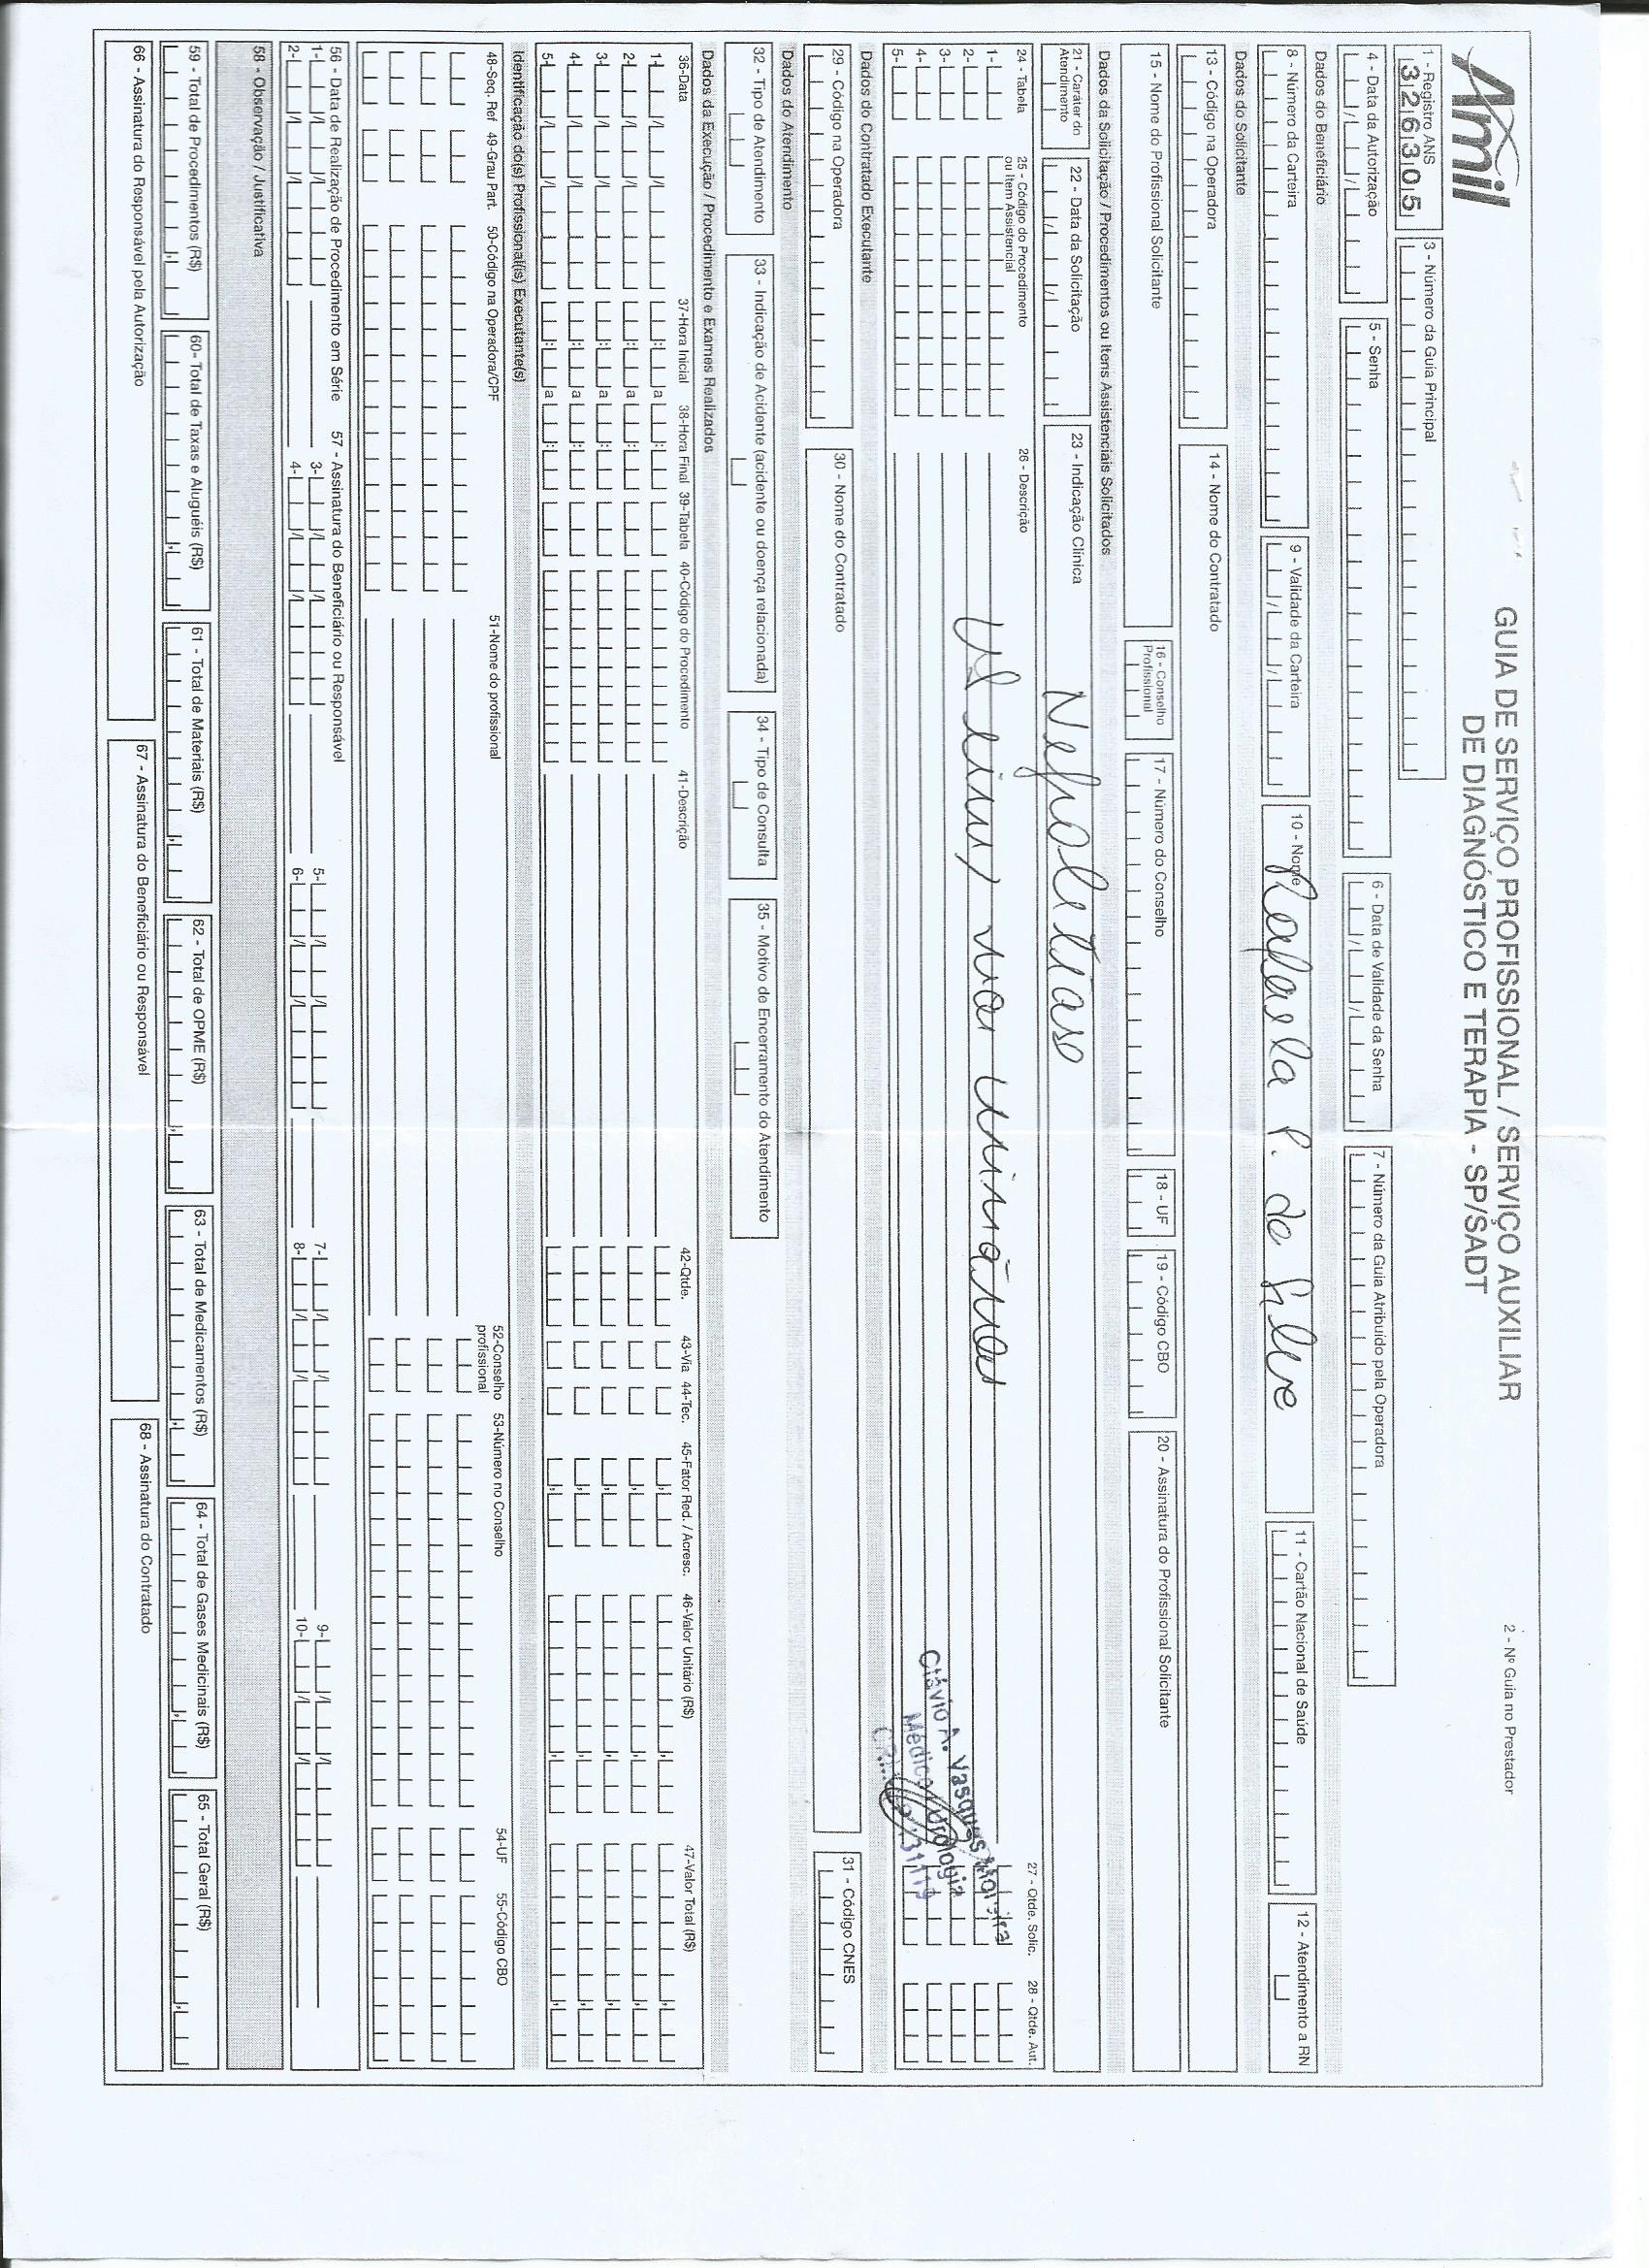 Amil
GUIA DE SERVIÇO PROFISSIONAL / SERVIÇO AUXILIAR
DE DIAGNÓSTICO E TERAPIA - SP/SADT
2 - Nº Guia no Prestador
1 - Registro ANS
326305
3 - Número da Guia Principal
4 - Data da Autorização
5 - Senha
6 - Data de Validade da Senha
7 - Número da Guia Atribuído pela Operadora
Dados do Beneficiário
8 - Número da Carteira
9 - Validade da Carteira
10 - Nome
Rafaela P. da Silva
11 - Cartão Nacional de Saúde
12 - Atendimento a RN
Dados do Solicitante
13 - Código na Operadora
14 - Nome do Contratado
15 - Nome do Profissional Solicitante
16 - Conselho
Profissional
17 - Número do Conselho
18 - UF
19 - Código CBO
20 - Assinatura do Profissional Solicitante
Dados da Solicitação / Procedimentos ou Itens Assistenciais Solicitados
21 - Caráter do
Atendimento
22 - Data da Solicitação
23 - Indicação Clínica
Nefrolitiase
24 - Tabela
25 - Código do Procedimento
ou Item Assistencial
26 - Descrição
27 - Qtde. Solic.
28 - Qtde. Aut.
1-
2-
3-
4-
5-
vias urinárias
Clávio A. Vasques Moreira
Médico Urologia
31119
Dados do Contratado Executante
29 - Código na Operadora
30 - Nome do Contratado
31 - Código CNES
Dados do Atendimento
32 - Tipo de Atendimento
33 - Indicação de Acidente (acidente ou doença relacionada)
34 - Tipo de Consulta
35 - Motivo de Encerramento do Atendimento
Dados da Execução / Procedimento e Exames Realizados
36-Data
37-Hora Inicial
38-Hora Final
39-Tabela
40-Código do Procedimento
41-Descrição
42-Qtde.
43-Via
44-Tec.
45-Fator Red. / Acresc.
46-Valor Unitário (R$)
47-Valor Total (R$)
1- a
2- a
3- a
4- a
5- a
Identificação do(s) Profissional(is) Executante(s)
48-Seq. Ref
49-Grau Part.
50-Código na Operadora/CPF
51-Nome do profissional
52-Conselho
profissional
53-Número no Conselho
54-UF
55-Código CBO
56 - Data de Realização de Procedimento em Série
57 - Assinatura do Beneficiário ou Responsável
1- 3- 5- 7- 9-
2- 4- 6- 8- 10-
58 - Observação / Justificativa
59 - Total de Procedimentos (R$)
60- Total de Taxas e Aluguéis (R$)
61 - Total de Materiais (R$)
62 - Total de OPME (R$)
63 - Total de Medicamentos (R$)
64 - Total de Gases Medicinais (R$)
65 - Total Geral (R$)
66 - Assinatura do Responsável pela Autorização
67 - Assinatura do Beneficiário ou Responsável
68 - Assinatura do Contratado